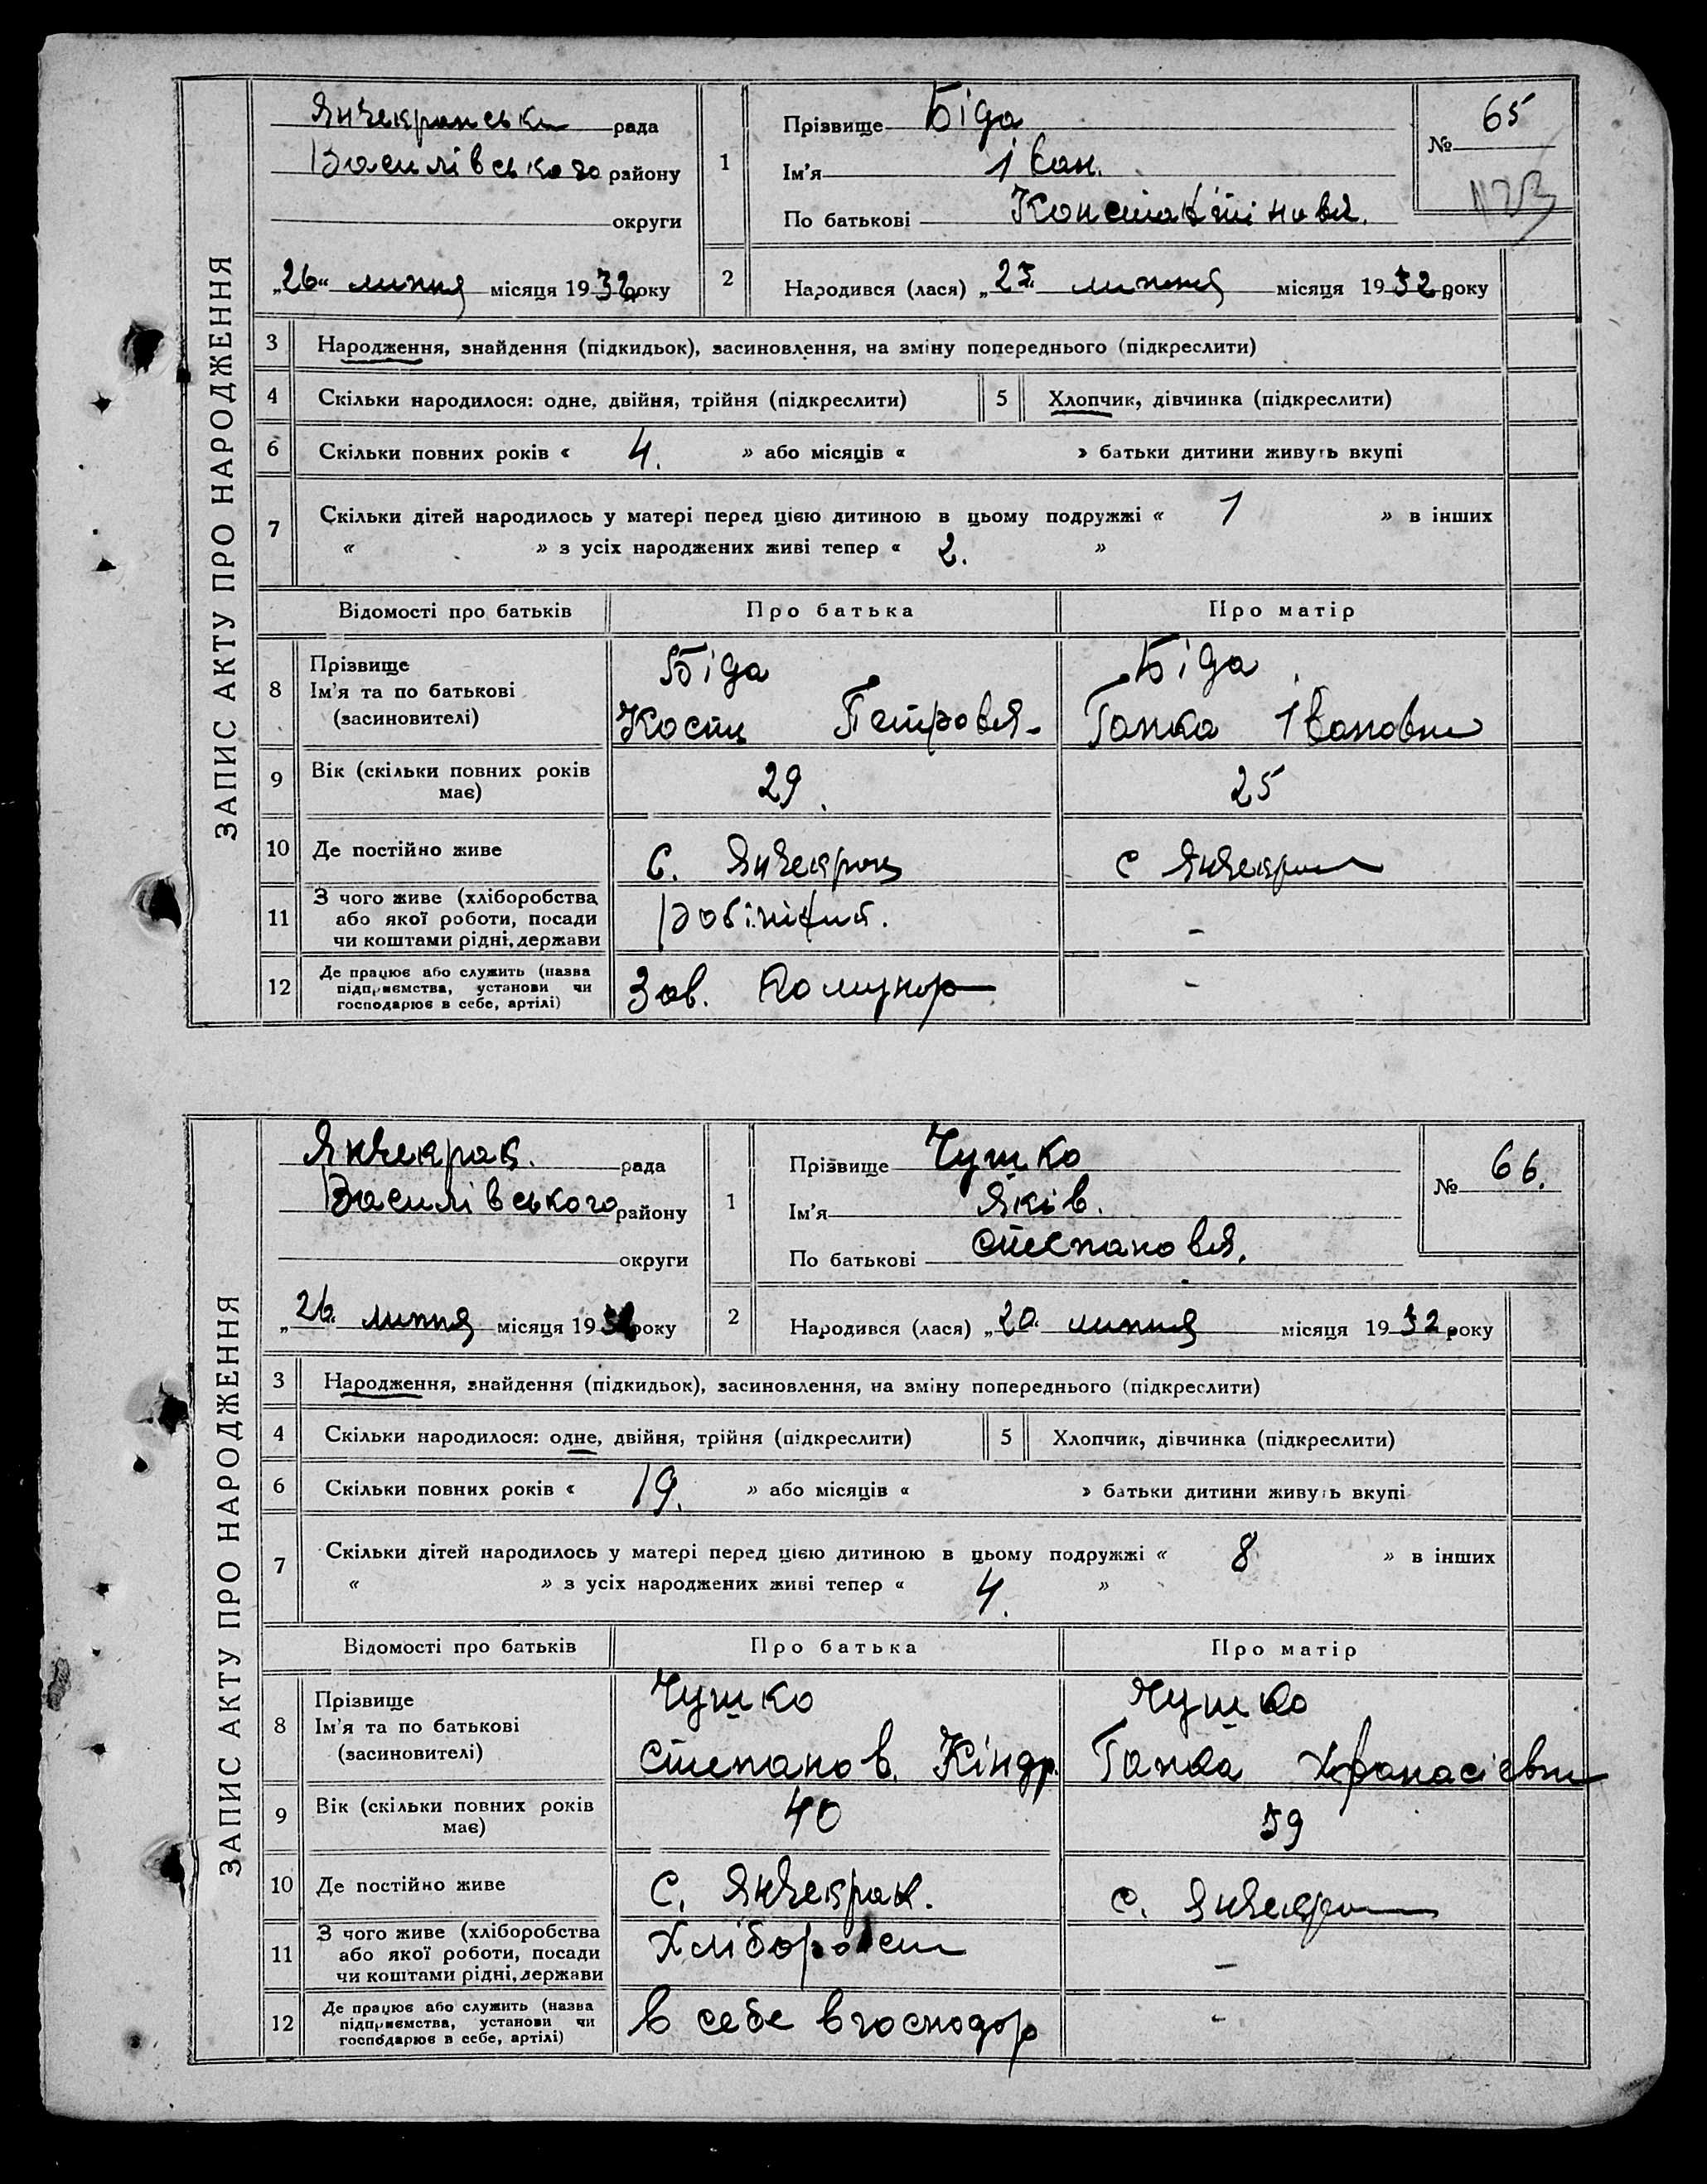 ЗАПИС АКТУ ПРО НАРОДЖЕННЯ
Янчекранська рада
Василівського району
округи
„26“ липня місяця 1932 року
1
Прізвище Біда
Ім'я Іван.
По батькові Констактіновя.
№ 65
1123
2
Народився (лася) „25“ липня місяця 1932 року
3 Народження, знайдення (підкидьок), засиновлення, на зміну попереднього (підкреслити)
4 Скільки народилося: одне, двійня, трійня (підкреслити) 5 Хлопчик, дівчинка (підкреслити)
6 Скільки повних років « 4. » або місяців « » батьки дитини живуть вкупі
7 Скільки дітей народилось у матері перед цією дитиною в цьому подружжі « 1 » в інших
« » з усіх народжених живі тепер « 2. »
Відомості про батьків Про батька Про матір
8 Прізвище
Ім'я та по батькові
(засиновителі)
Біда
Кость Петровя-
Біда
Ганка Івановни
9 Вік (скільки повних років має) 29. 25
10 Де постійно живе С. Янчекрак с Янчекрак
11 З чого живе (хліборобства
або якої роботи, посади
чи коштами рідні, держави
Робітний. -
12 Де працює або служить (назва
підприємства, установи чи
господарює в себе, артілі)
Зав. Комунор -
ЗАПИС АКТУ ПРО НАРОДЖЕННЯ
Янчекрак. рада
Василівського району
округи
„26“ липня місяця 1932 року
1
Прізвище Чушко
Ім'я Яків.
По батькові Степановя.
№ 66.
2
Народився (лася) „20“ липня місяця 1932 року
3 Народження, знайдення (підкидьок), засиновлення, на зміну попереднього (підкреслити)
4 Скільки народилося: одне, двійня, трійня (підкреслити) 5 Хлопчик, дівчинка (підкреслити)
6 Скільки повних років « 19. » або місяців « » батьки дитини живуть вкупі
7 Скільки дітей народилось у матері перед цією дитиною в цьому подружжі « 8 » в інших
« » з усіх народжених живі тепер « 4. »
Відомості про батьків Про батька Про матір
8 Прізвище
Ім'я та по батькові
(засиновителі)
Чушко
Степанов. Кіндр.
Чушко
Ганка Афанасієвни
9 Вік (скільки повних років має) 40 39
10 Де постійно живе С. Янчекрак. с. Янчекрак
11 З чого живе (хліборобства
або якої роботи, посади
чи коштами рідні, держави
Хліборобст -
12 Де працює або служить (назва
підприємства, установи чи
господарює в себе, артілі)
в себе в господар -